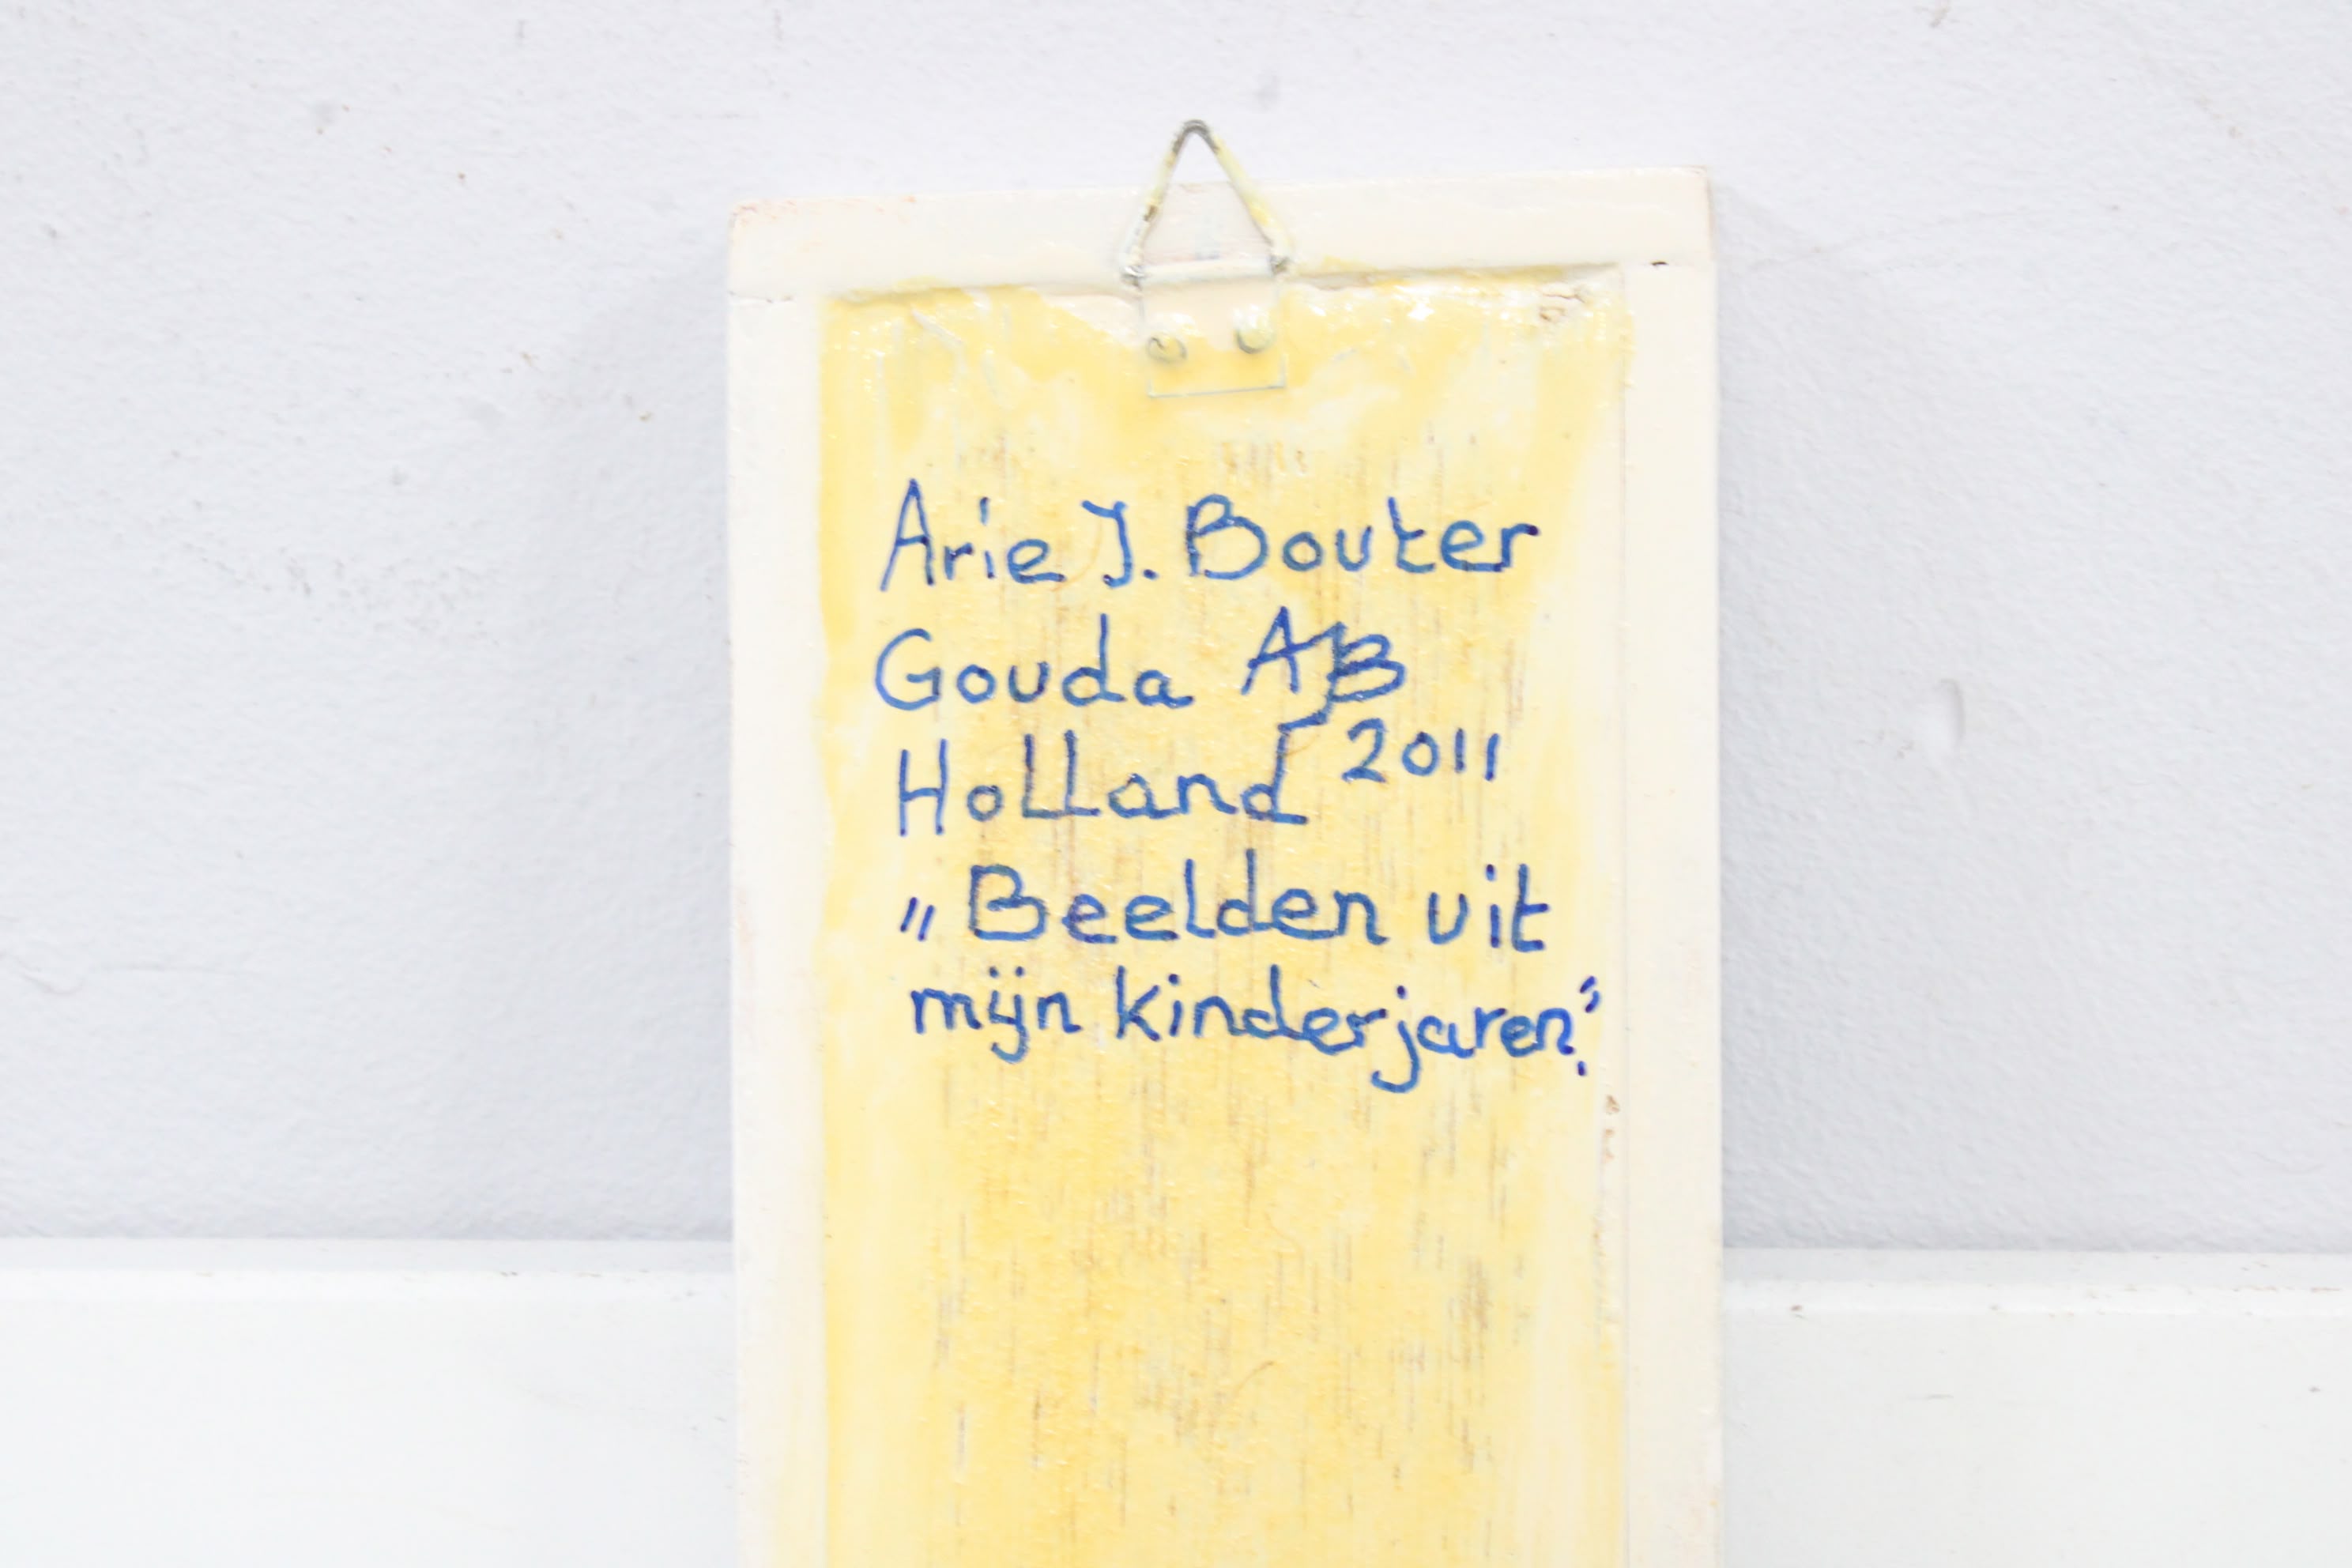 Arie J. Bouter
Gouda AJB
Holland 2011
„Beelden uit
mijn kinderjaren”.